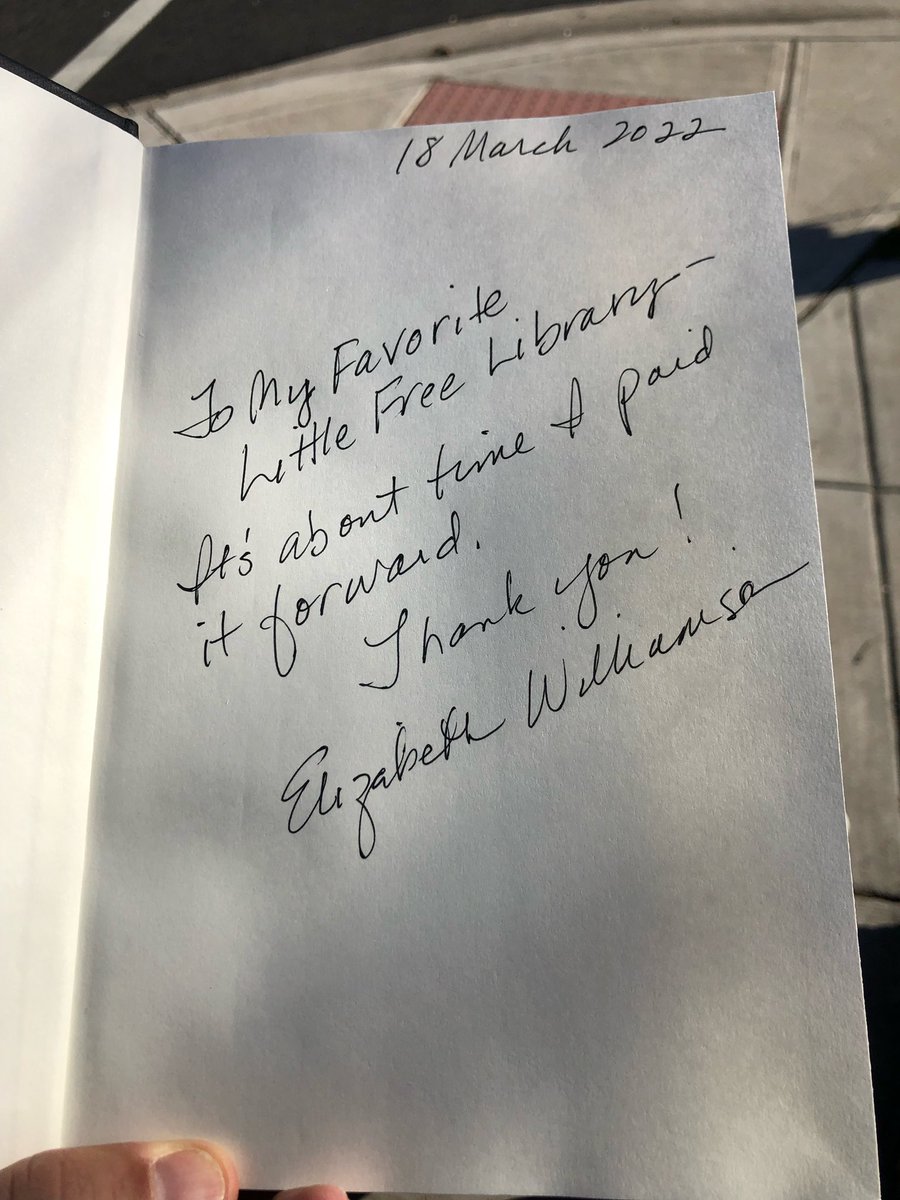 18 March 2022
To My Favorite
Little Free Library–
It's about time I paid
it forward.
Thank you!
Elizabeth Williamson